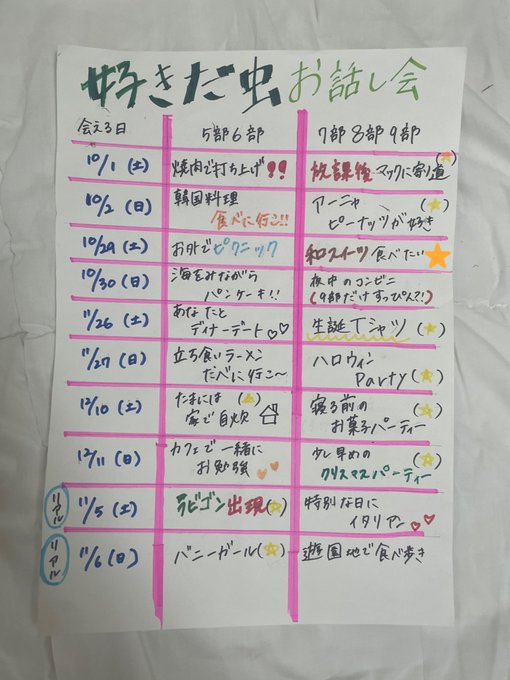 好きだ虫 お話し会
会える日 5部6部 7部8部9部
10/1(土) 焼肉で打ち上げ!! 放課後マックに寄り道(☆)
10/2(日) 韓国料理 食べに行こ!! アーニャ ピーナッツが好き(☆)
10/29(土) お外でピクニック 和スイーツ食べたい★
10/30(日) 海をみながら パンケーキ!! 夜中のコンビニ (9部だけすっぴん?!)
11/26(土) あなたと ディナーデート♡♡ 生誕Tシャツ(☆)
11/27(日) 立ち食いラーメン たべに行こ〜 ハロウィン Party(☆)
12/10(土) たまには(☆) 家で自炊 寝る前の お菓子パーティー(☆)
12/11(日) カフェで一緒に お勉強♡♡ 少し早めの クリスマスパーティー(☆)
リアル 11/5(土) ラビゴン出現(☆) 特別な日に イタリアン♡♡
リアル 11/6(日) バニーガール(☆) 遊園地で食べ歩き